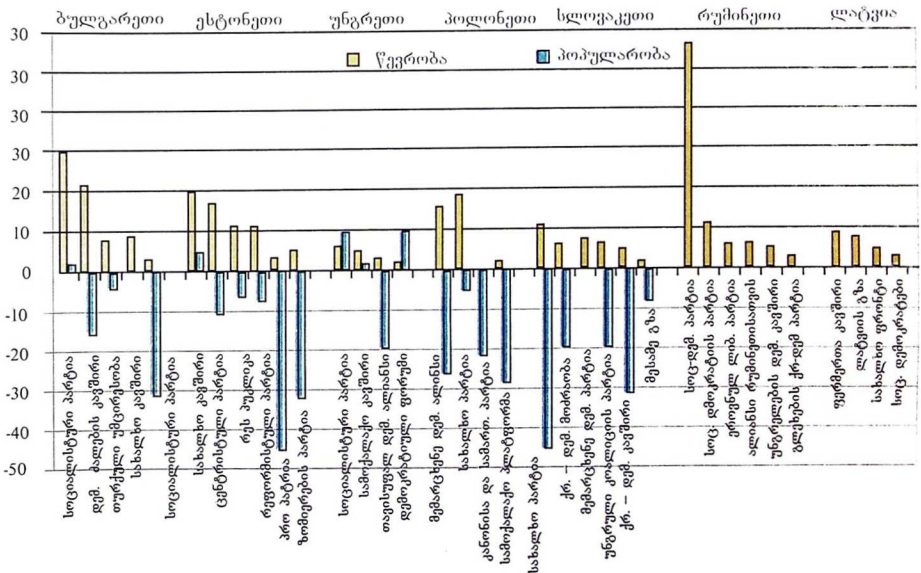 ბულგარეთი ესტონეთი უნგრეთი პოლონეთი სლოვაკეთი რუმინეთი ლატვია
წევრობა
პოპულარობა
30
30
30
30
20
10
0
-10
-20
-30
-40
-50
სოციალისტური პარტია
დემ. ძალების კავშირი
თურქული უმცირესობა
სახალხო კავშირი
სოციალისტური პარტია
სახალხო კავშირი
ცენტრისტული პარტია
რეს პუბლიკა
რეფორმისტული პარტია
პრო პატრია
ზომიერების პარტია
სოციალისტური პარტია
სამოქალაქო კავშირი
თავისუფალ დემ. ალიანსი
დემოკრატიული ფორუმი
მემარცხენე დემ. ალიონსი
სახალხო პარტია
კანონისა და სამართ. პარტია
სამოქალაქო პლატფორმა
სახალხო პარტია
ქრ. – დემ. მოძრაობა
მემარცხენე დემ. პარტია
უნგრული კოალიციის პარტია
ქრ. – დემ. კავშირი
მესამე გზა
სოც-დემ. პარტია
სოც. დმოკრატიის პარტია
ეროვნულ ლიბ. პარტია
ალიანსი რუმინეთისათვის
უნგრელების დემ. კავშირი
გლეხების ქრ-დემ პარტია
ფერმერთა კავშირი
ლატვიის გზა
სახალხო ფრონტი
სოც. დემოკრატები